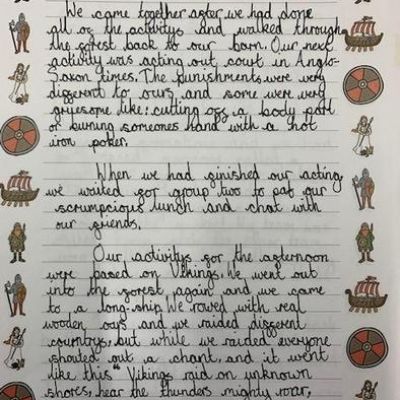 We came together after we had done
all of the activitys and walked through
the forest back to our barn. Our next
activity was acting out court in Anglo-
Saxon times. The punishments were very
different to ours and some were very
gruesome like: cutting off a body part
or burning someones hand with a hot
iron poker.
When we had finished our acting
we waited for group two to eat our
scrumpcious lunch and chat with
our friends.
Our activitys for the afternoon
were based on Vikings. We went out
into the forest again and we came
to a long-ship. We rowed with real
wooden oars and we raided different
countrys, but while we raided everyone
shouted out a chant, and it went
like this "Vikings raid on unknown
shores, hear the thunders mighty roar,